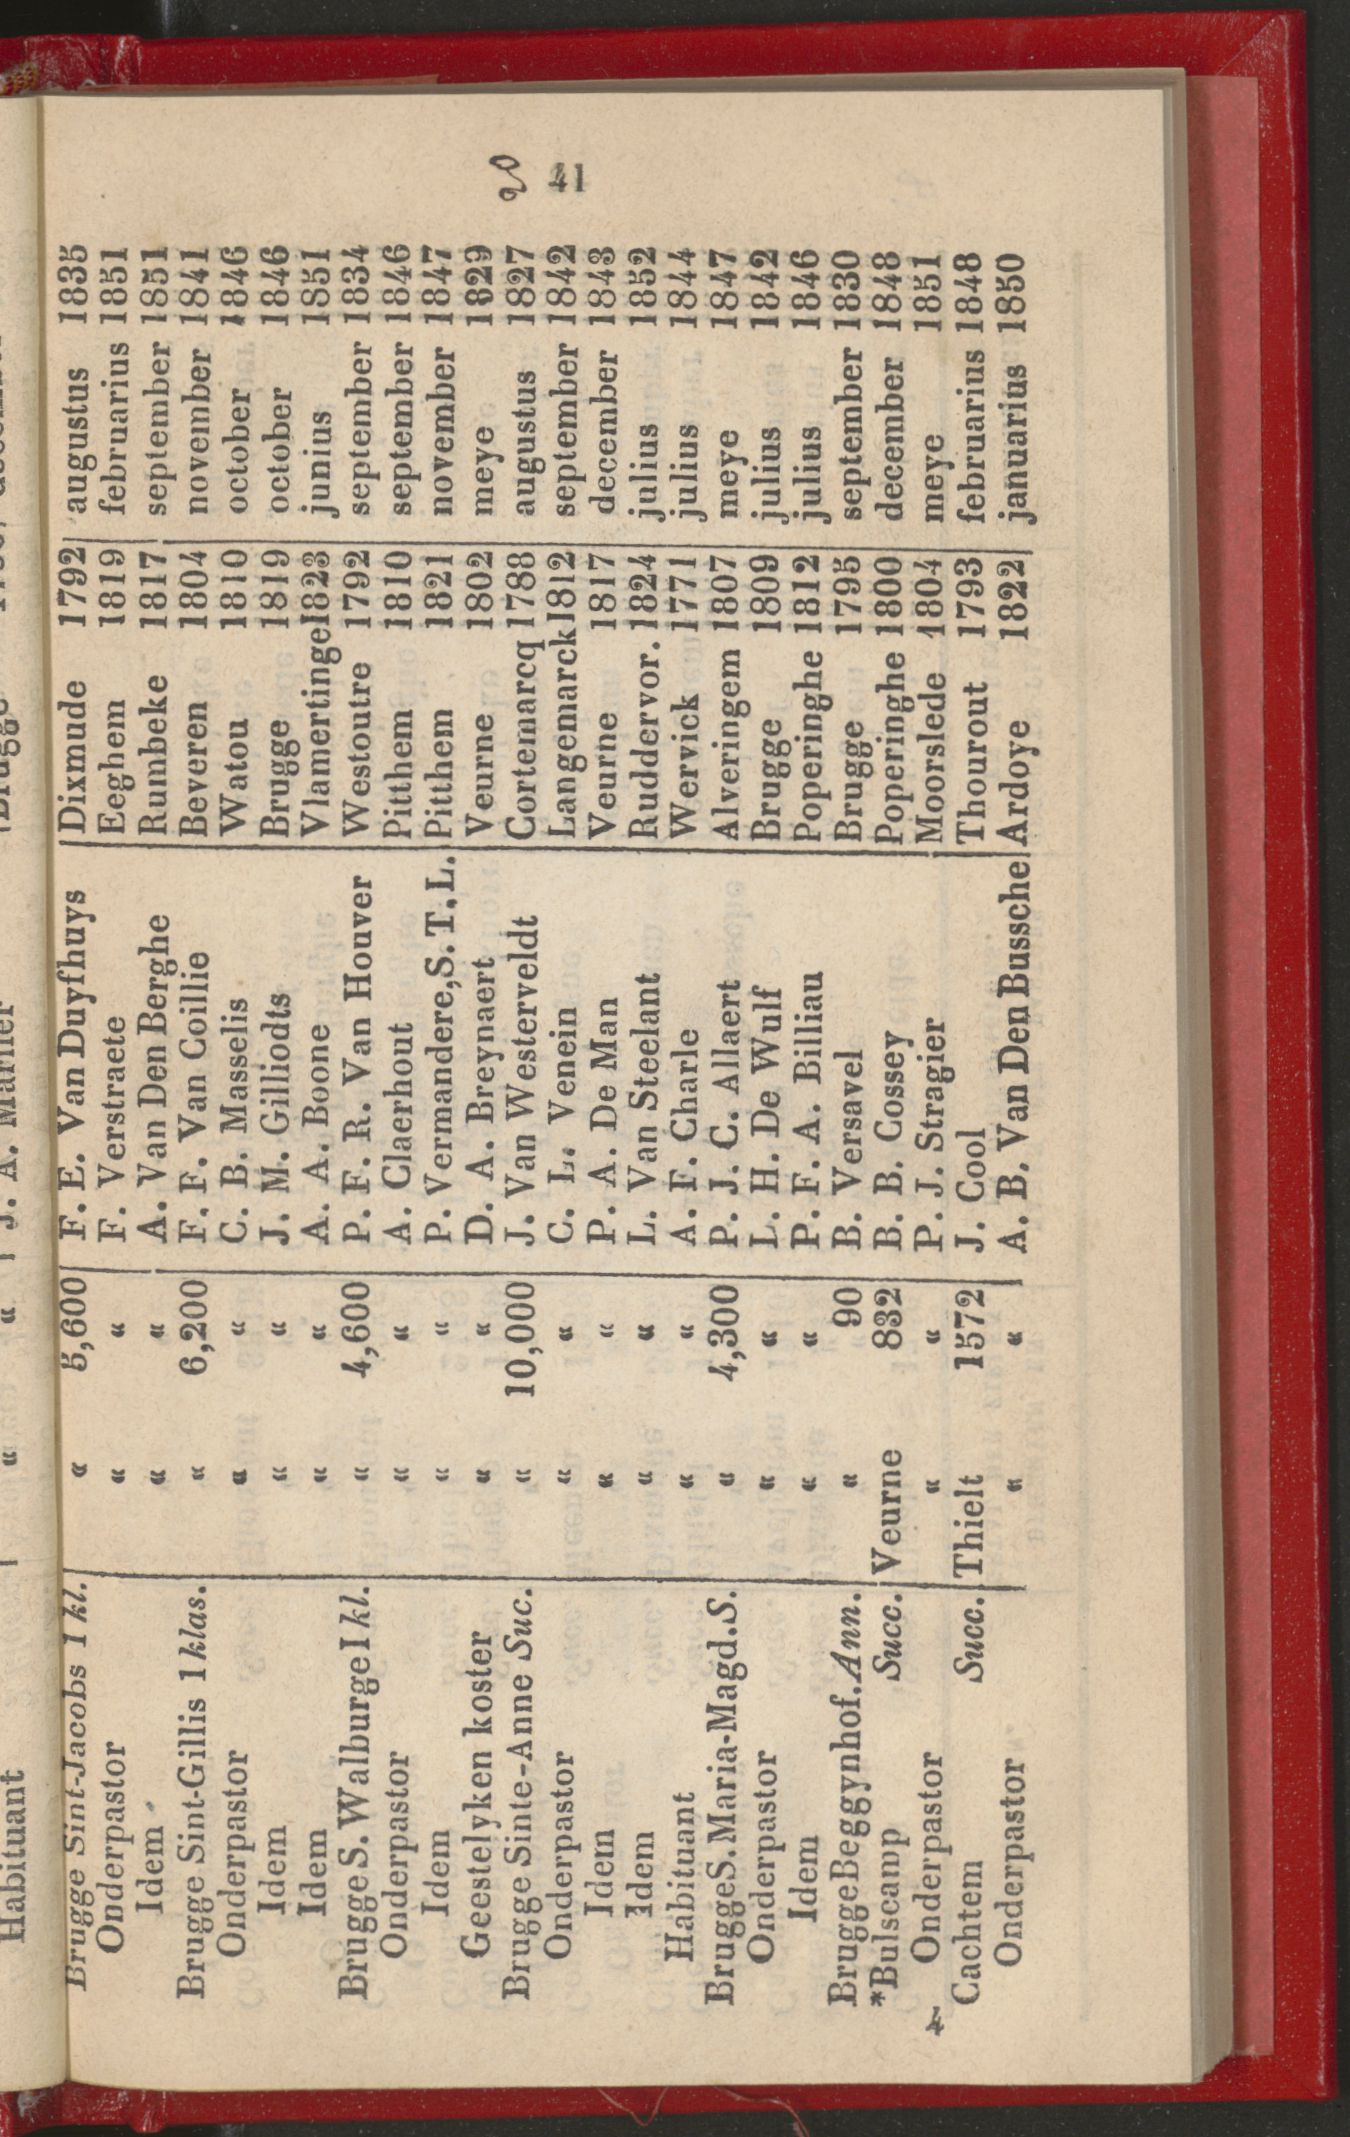 20
41
Brugge Sint-Jacobs 1 kl. « 5,600 F. E. Van Duyfhuys Dixmude 1792 augustus 1835
Onderpastor « « F. Verstraete Eeghem 1819 februarius 1851
Idem « « A. Van Den Berghe Rumbeke 1817 september 1851
Brugge Sint-Gillis 1 klas. « 6,200 F. F. Van Coillie Beveren 1804 november 1841
Onderpastor « « C. B. Masselis Watou 1810 october 1846
Idem « « J. M. Gilliodts Brugge 1819 october 1846
Idem « « A. A. Boone Vlamertinge 1823 junius 1851
Brugge S. Walburge 1 kl. « 4,600 P. F. R. Van Houver Westoutre 1792 september 1834
Onderpastor « « A. Claerhout Pitthem 1810 september 1846
Idem « « P. Vermandere, S. T. L. Pitthem 1821 november 1847
Geestelyken koster « « D. A. Breynaert Veurne 1802 meye 1829
Brugge Sinte-Anne Suc. « 10,000 J. Van Westerveldt Cortemarcq 1788 augustus 1827
Onderpastor « « C. L. Venein Langemarck 1812 september 1842
Idem « « P. A. De Man Veurne 1817 december 1843
Idem « « L. Van Steelant Ruddervor. 1824 julius 1852
Habituant « « A. F. Charle Wervick 1771 julius 1844
Brugge S. Maria-Magd. S. « 4,300 P. J. C. Allaert Alveringem 1807 meye 1847
Onderpastor « « L. H. De Wulf Brugge 1809 julius 1842
Idem « « P. F. A. Billiau Poperinghe 1812 julius 1846
Brugge Beggynhof. Ann. « 90 B. Versavel Brugge 1795 september 1830
*Bulscamp Succ. Veurne 832 B. B. Cossey Poperinghe 1800 december 1848
Onderpastor « « P. J. Stragier Moorslede 1804 meye 1851
Cachtem Succ. Thielt 1572 J. Cool Thourout 1793 februarius 1848
Onderpastor « « A. B. Van Den Bussche Ardoye 1822 januarius 1850